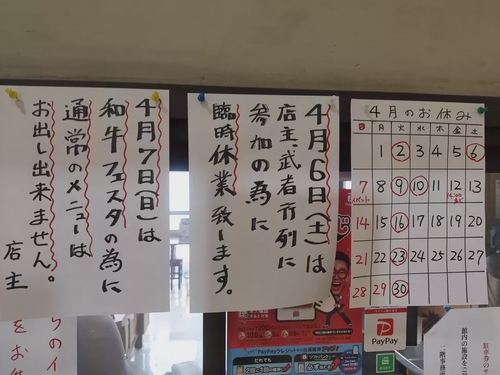 4月7日(日)は
和牛フェスタの為に
通常のメニューは
お出し出来ません。
店主
4月6日(土)は
店主、武者行列に
参加の為に
臨時休業致します。
4月のお休み
日 月 火 水 木 金 土
1 2 3 4 5 6
7 8 9 10 11 12 13
イベント
14 15 16 17 18 19 20
21 22 23 24 25 26 27
28 29 30
PayPay
PayPayクレジット
だれでも
館内の施設を
二階事務所